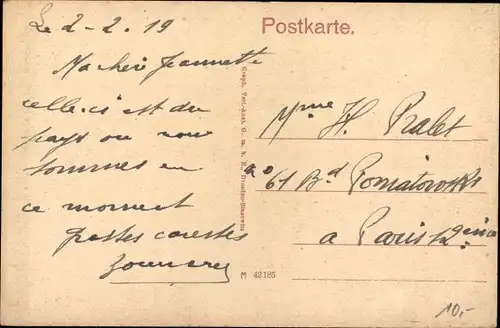 Le 2-2.19
Postkarte.
Ma chère Jeannette
celle-ci est du
pays ou nous
sommes en
ce moment
grosses caresses
Graph. Verl.-Anst. G. m. b. H., Dresden-Blasewitz
Mme H. Ralet
61 Bd Poniatowski
a Paris 12eme
M 42185
10,-